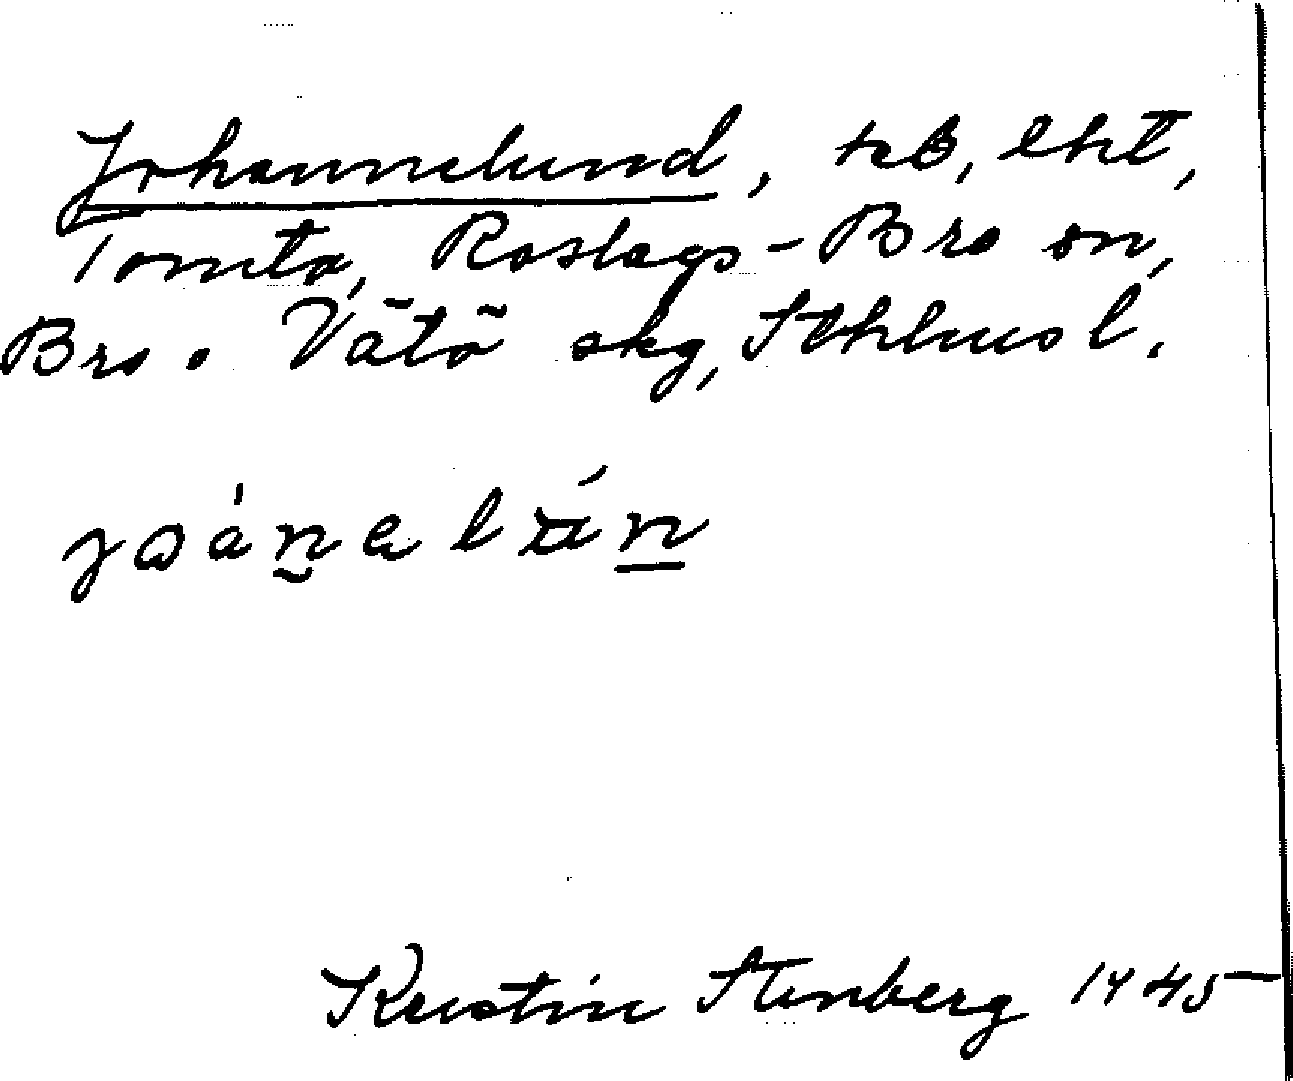 Johannelund, lht,
Tomta, Roslags-Bro sn,
Bro o Vätö skg, Sthlms l.
Kristin Stenberg 1945